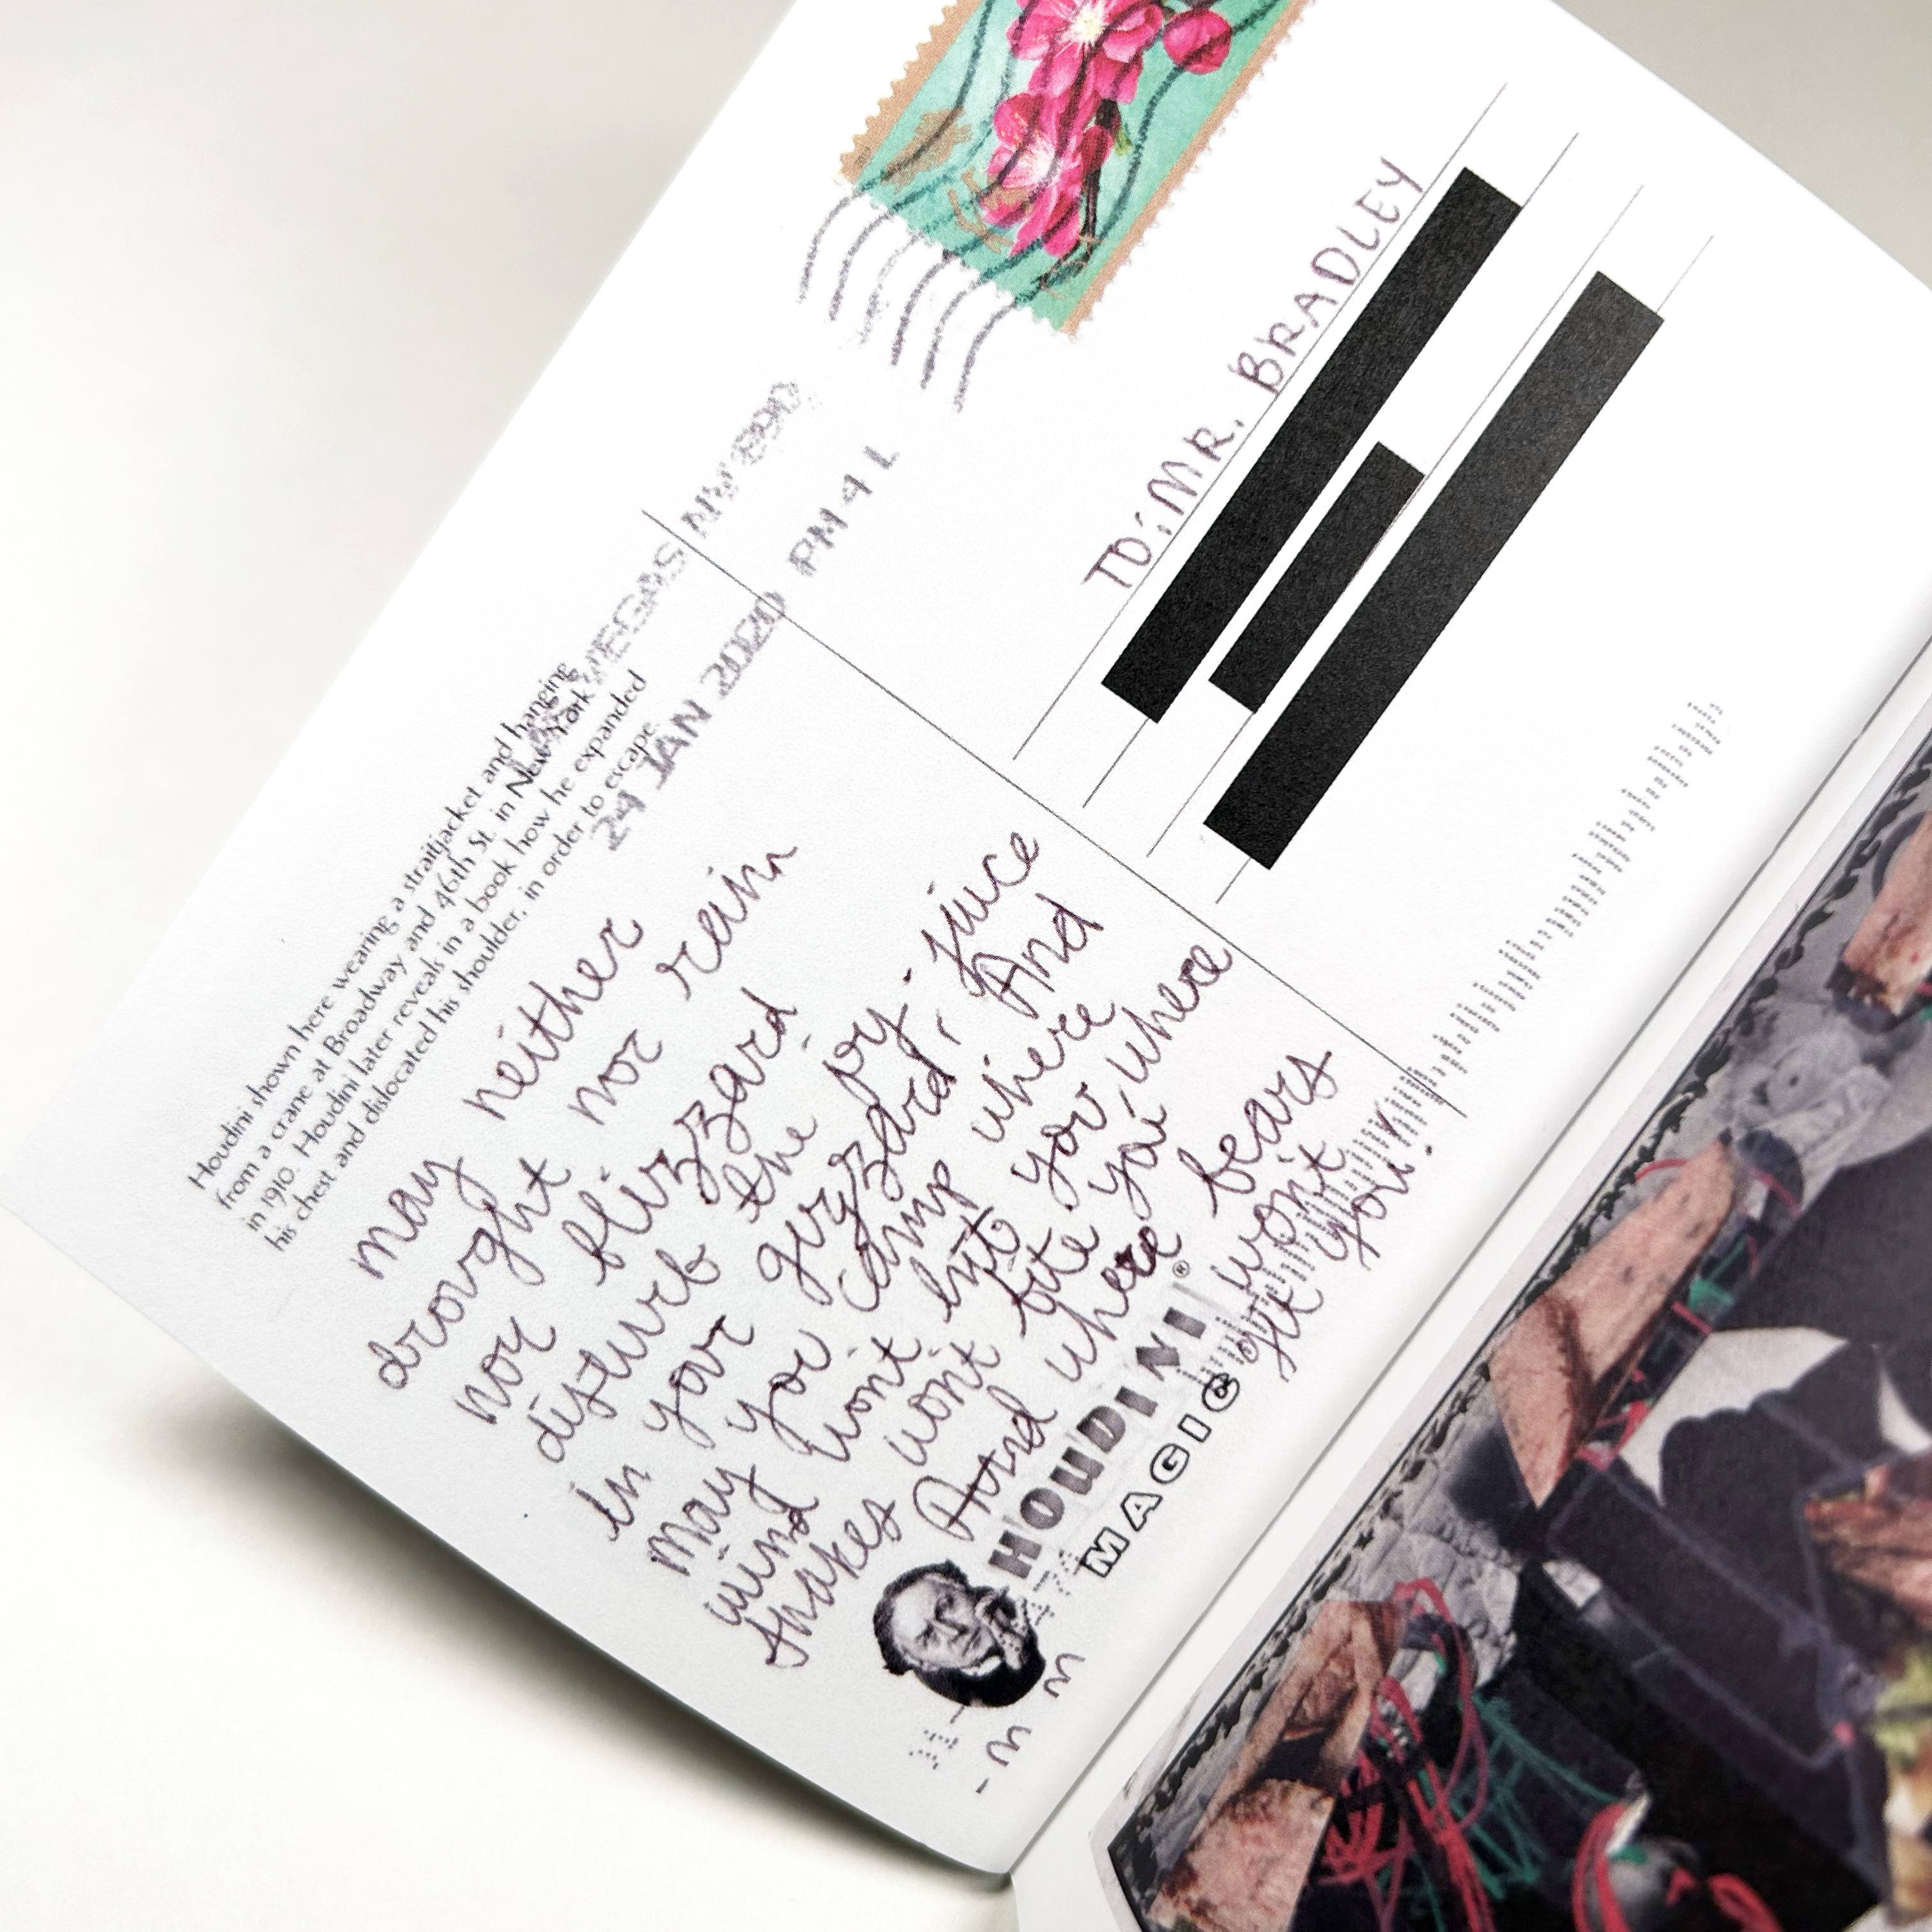 Houdini shown here wearing a straitjacket and hanging
from a crane at Broadway and 46th St. in New York
in 1910. Houdini later reveals in a book how he expanded
his chest and dislocated his shoulder, in order to escape.
VEGAS NV 890
24 JAN 2020 PM 4 L
may neither
drought nor rein
nor blizzard
disturb the joy juice
in your gizzard, And
may you camp where
wind won't hit you where
snakes won't bite you
And where bears
won't
you!
HOUDINI®
MAGIC
TO: MR. BRADLEY